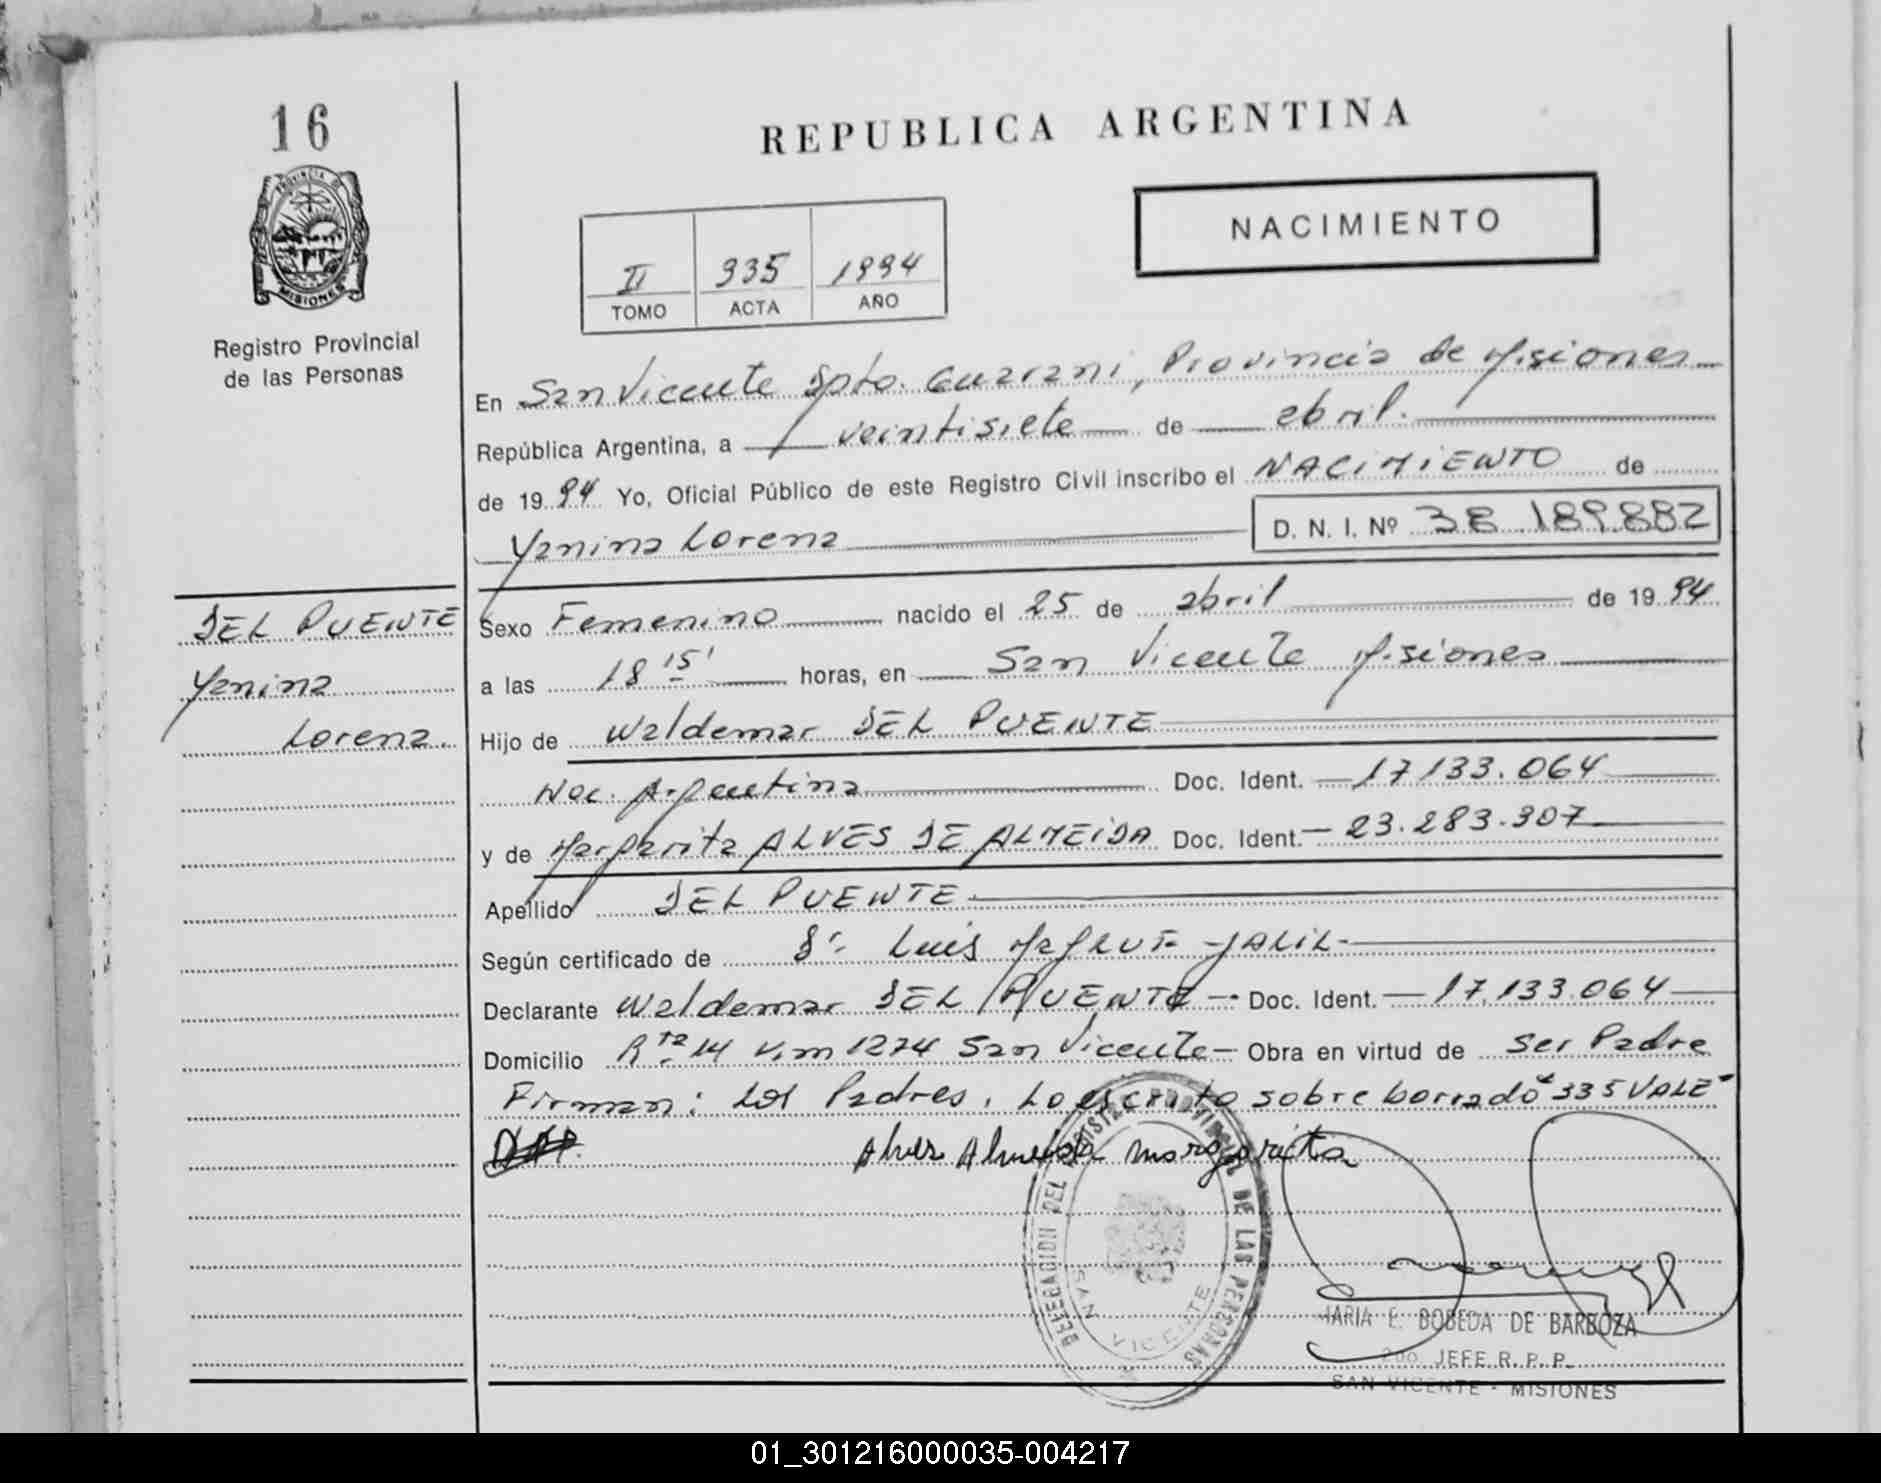 16
PROVINCIA DE
MISIONES
Registro Provincial
de las Personas
REPUBLICA ARGENTINA
NACIMIENTO
II 335 1994
TOMO ACTA AÑO
En San Vicente Dpto. Guarani, Provincia de Misiones
República Argentina, a veintisiete de abril.
de 1994 Yo, Oficial Público de este Registro Civil inscribo el NACIMIENTO de
Yanina Lorena D. N. I. Nº 38.189.882
DEL PUENTE
Yanina
Lorena.
Sexo Femenino nacido el 25 de abril de 1994
a las 18 15' horas, en San Vicente Misiones
Hijo de Waldemar DEL PUENTE
Nac. Argentina Doc. Ident. 17133.064
y de Margarita ALVES DE ALMEIDA Doc. Ident. 23.283.307
Apellido DEL PUENTE
Según certificado de Dr. Luis JALIL
Declarante Waldemar DEL PUENTE Doc. Ident. 17.133.064
Domicilio Rta 14 1274 San Vicente Obra en virtud de ser Padre
Firman: Los Padres. Lo escrito sobre borrado "335 VALE"
Alves Almeida Margarita
DELEGACION DEL REGISTRO PROVINCIAL DE LAS PERSONAS
SAN VICENTE
MARIA E. BOBEDA DE BARBOZA
2do. JEFE R. P. P.
SAN VICENTE - MISIONES
01_301216000035-004217